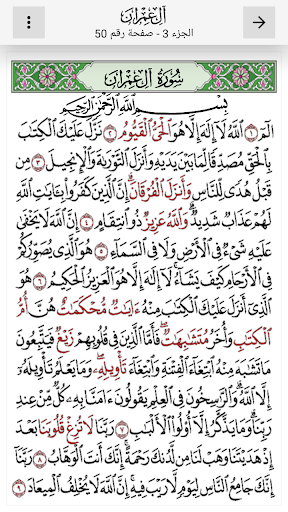 آل عمران
الجزء 3 - صفحة رقم 50
سورة آل عمران
بسم الله الرحمن الرحيم
الٓمٓ ١ ٱللَّهُ لَآ إِلَٰهَ إِلَّا هُوَ ٱلْحَىُّ ٱلْقَيُّومُ ٢ نَزَّلَ عَلَيْكَ ٱلْكِتَٰبَ
بِٱلْحَقِّ مُصَدِّقًا لِّمَا بَيْنَ يَدَيْهِ وَأَنزَلَ ٱلتَّوْرَىٰةَ وَٱلْإِنجِيلَ ٣ مِن
قَبْلُ هُدًى لِّلنَّاسِ وَأَنزَلَ ٱلْفُرْقَانَ إِنَّ ٱلَّذِينَ كَفَرُوا۟ بِـَٔايَٰتِ ٱللَّهِ
لَهُمْ عَذَابٌ شَدِيدٌ وَٱللَّهُ عَزِيزٌ ذُو ٱنتِقَامٍ ٤ إِنَّ ٱللَّهَ لَا يَخْفَىٰ
عَلَيْهِ شَىْءٌ فِى ٱلْأَرْضِ وَلَا فِى ٱلسَّمَآءِ ٥ هُوَ ٱلَّذِى يُصَوِّرُكُمْ
فِى ٱلْأَرْحَامِ كَيْفَ يَشَآءُ لَآ إِلَٰهَ إِلَّا هُوَ ٱلْعَزِيزُ ٱلْحَكِيمُ ٦ هُوَ
ٱلَّذِىٓ أَنزَلَ عَلَيْكَ ٱلْكِتَٰبَ مِنْهُ ءَايَٰتٌ مُّحْكَمَٰتٌ هُنَّ أُمُّ
ٱلْكِتَٰبِ وَأُخَرُ مُتَشَٰبِهَٰتٌ فَأَمَّا ٱلَّذِينَ فِى قُلُوبِهِمْ زَيْغٌ فَيَتَّبِعُونَ
مَا تَشَٰبَهَ مِنْهُ ٱبْتِغَآءَ ٱلْفِتْنَةِ وَٱبْتِغَآءَ تَأْوِيلِهِۦ وَمَا يَعْلَمُ تَأْوِيلَهُۥٓ
إِلَّا ٱللَّهُ وَٱلرَّٰسِخُونَ فِى ٱلْعِلْمِ يَقُولُونَ ءَامَنَّا بِهِۦ كُلٌّ مِّنْ عِندِ
رَبِّنَا وَمَا يَذَّكَّرُ إِلَّآ أُو۟لُوا۟ ٱلْأَلْبَٰبِ ٧ رَبَّنَا لَا تُزِغْ قُلُوبَنَا بَعْدَ
إِذْ هَدَيْتَنَا وَهَبْ لَنَا مِن لَّدُنكَ رَحْمَةً إِنَّكَ أَنتَ ٱلْوَهَّابُ ٨ رَبَّنَآ
إِنَّكَ جَامِعُ ٱلنَّاسِ لِيَوْمٍ لَّا رَيْبَ فِيهِ إِنَّ ٱللَّهَ لَا يُخْلِفُ ٱلْمِيعَادَ ٩